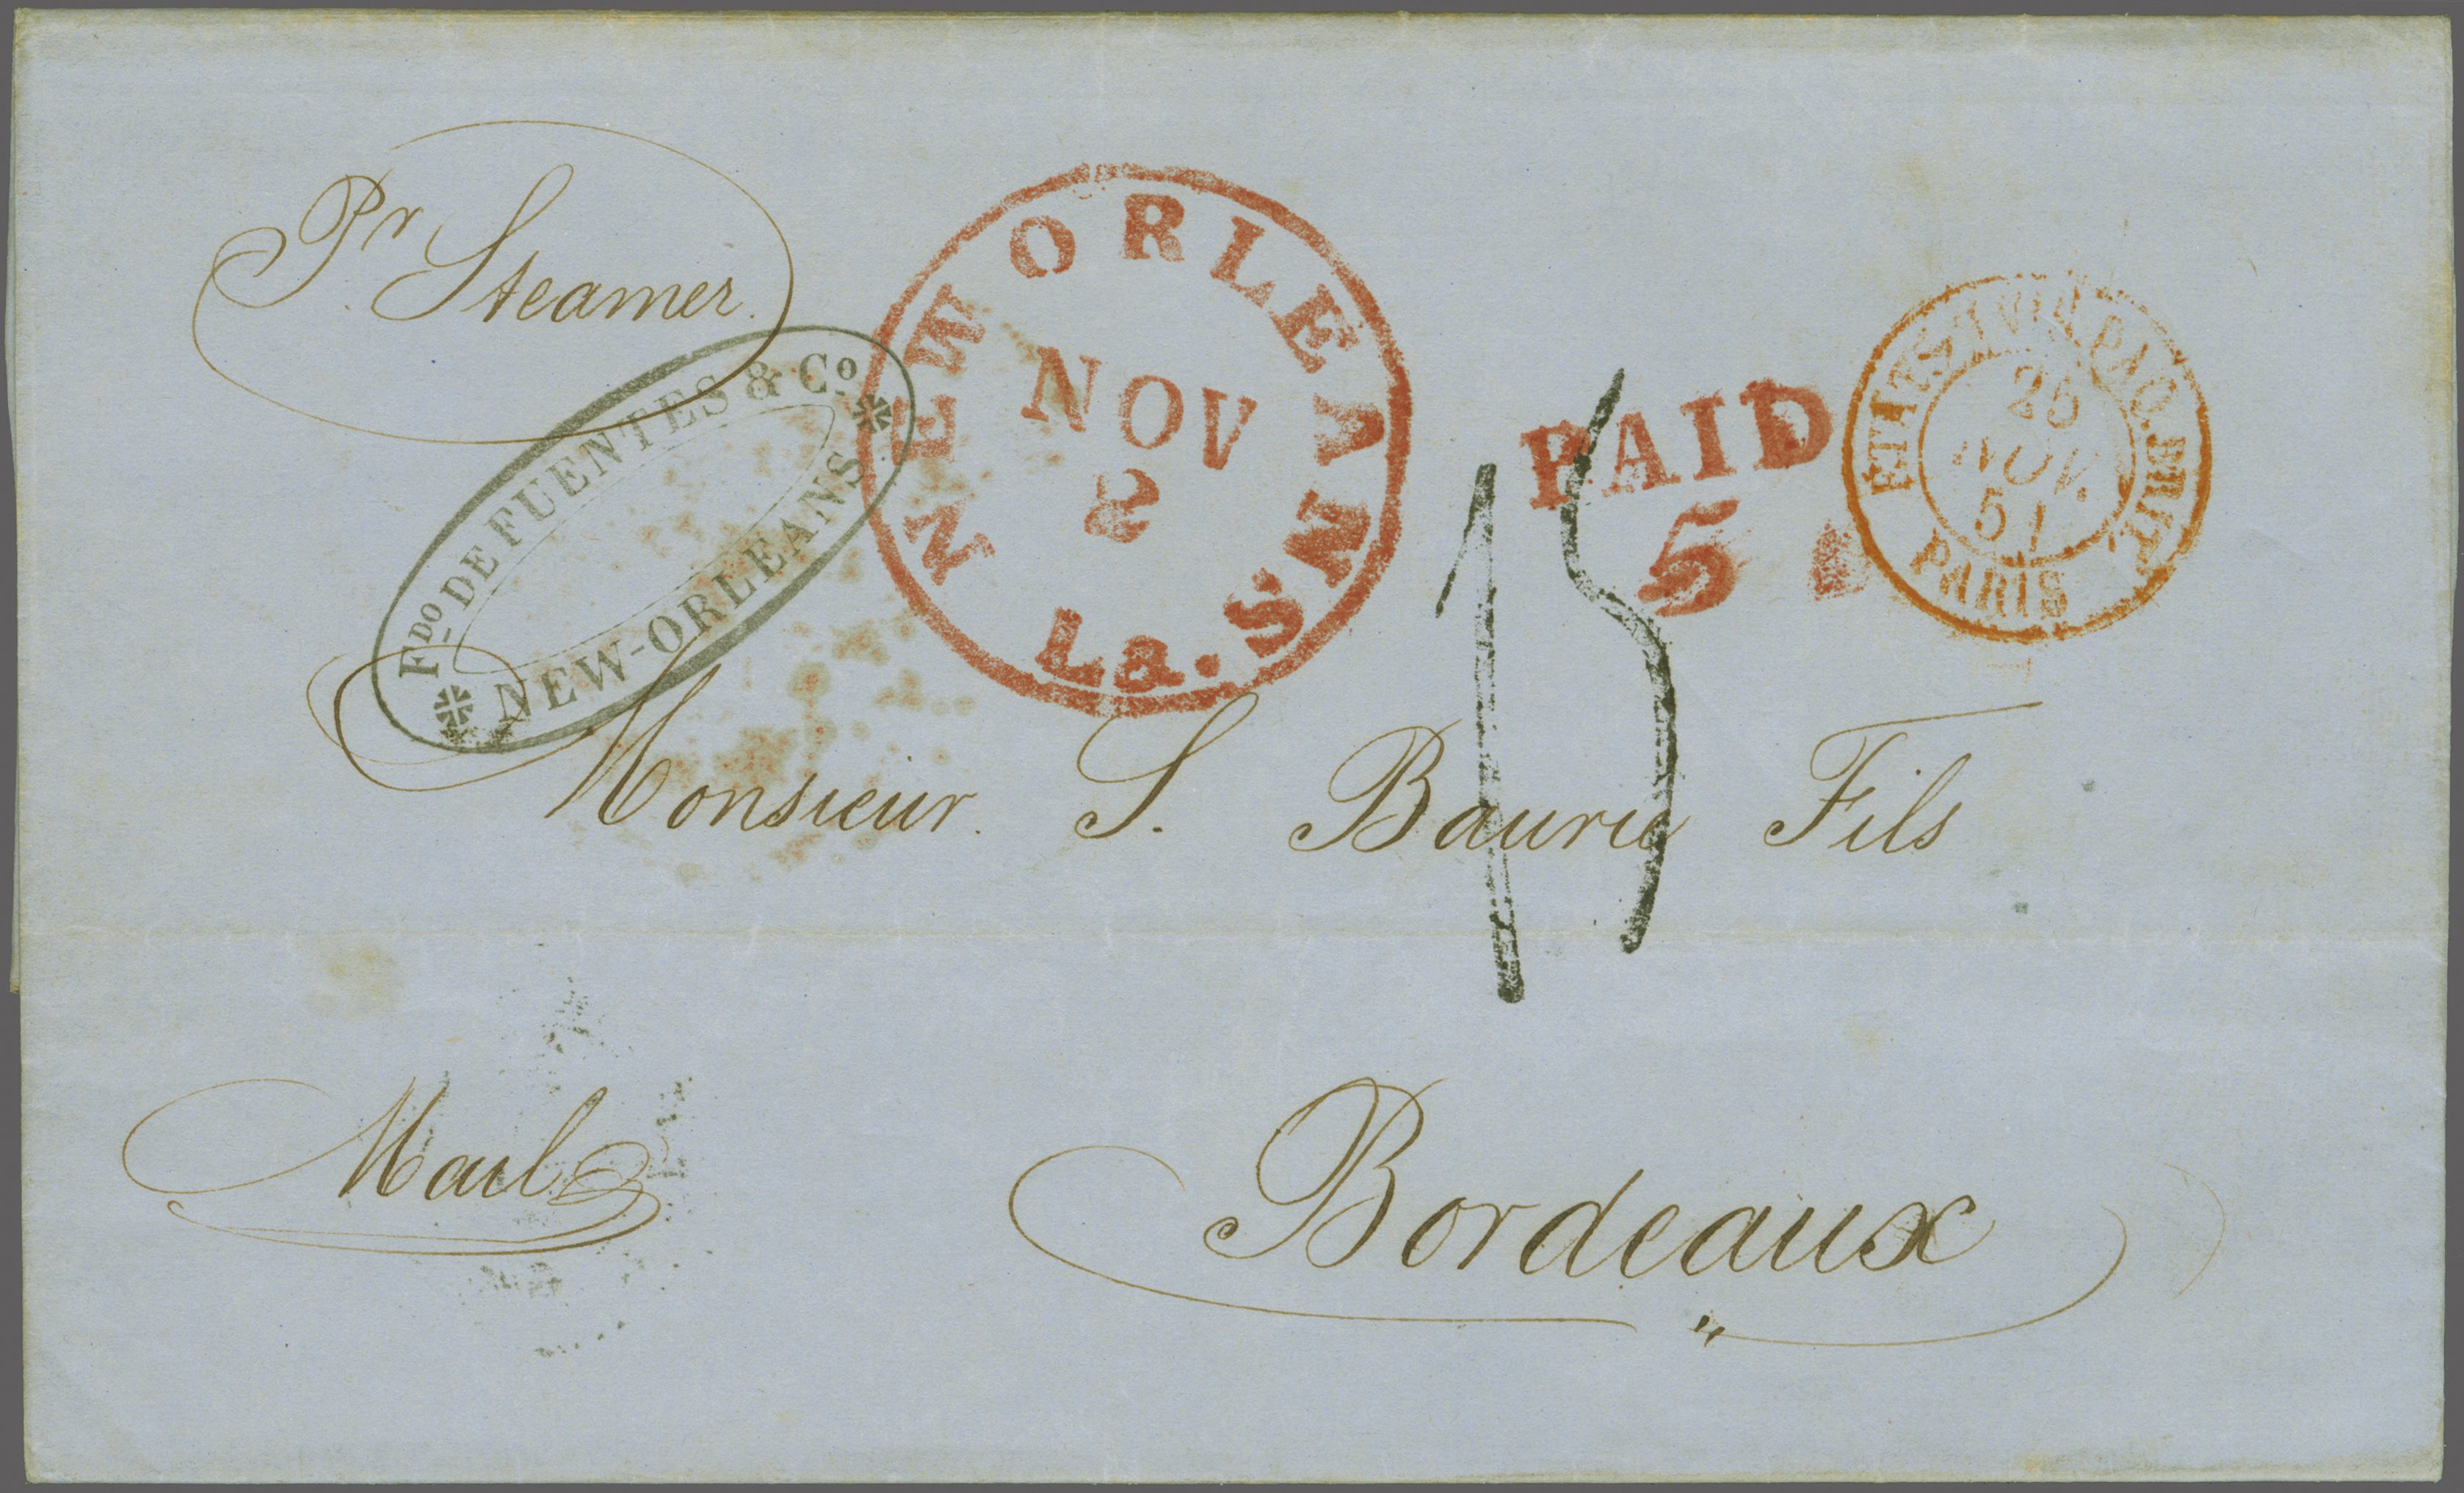 Pr. Steamer.
Fdo DE FUENTES & Co.
NEW-ORLEANS
NEW ORLEANS
NOV
2
La.
PAID
5
ETITS-UNIS PAQ. BRIT.
25
NOV.
51
PARIS
15
Monsieur. S. Baurie Fils
Mail
Bordeaux